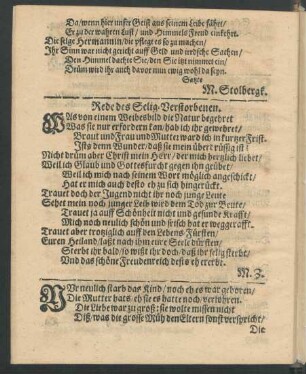 Da/ wenn hier unser Geist aus seinem Leibe fährt/
Er zu der wahren Lust/ und Himmels Freud einkehrt.
Die selge Hermannin/ die pflegt es so zu machen/
Ihr Sinn war nicht gericht auff Geld und irrdsche Sachen/
Den Himmel dachte Sie/ den Sie itzt nimmet ein/
Drüm wird ihr auch davor nun ewig wohl da seyn.
Satzte
M. Stolbergk.
Rede des Selig-Verstorbenen.
Was von einem Weibesbild die Natur begehret
Was sie nur erfordern kan/ das ich ihr gewehret/
Braut und Frau und Mutter ward ich in kurtzer Frist.
Ists denn Wunder/ daß sie mein übrdrüssig ist!
Nicht drüm aber Christ mein Herr/ der mich hertzlich liebet/
Weil ich Glaub und Gottesfurcht gegen ihn geübet/
Weil ich mich nach seinem Wort möglich angeschickt/
Hat er mich auch desto eh zu sich hingerückt.
Trauet doch der Jugend nicht ihr noch junge Leute
Sehet mein noch junger Leib wird dem Tod zur Beute/
Trauet ja auff Schönheit nicht und gesunde Krafft/
Mich noch neulich schön und frisch hat er weggerafft.
Trauet aber trotziglich auff den Lebens-Fürsten/
Euren Heiland/ laßt nach ihm eure Seele dürsten/
Sterbt ihr bald/ so wißt ihr doch/ daß ihr selig sterbt/
Und das schöne Freudenreich desto eh ererbt.
M. Z.
neulich starb das Kind/ noch eh es war geboren/
Die Mutter hats/ eh sie es hatte noch/ verlohren.
Die Liebe war zu groß: sie wolte missen nicht
Diß/ was die grosse Müh den Eltern sonst verspricht/
Die